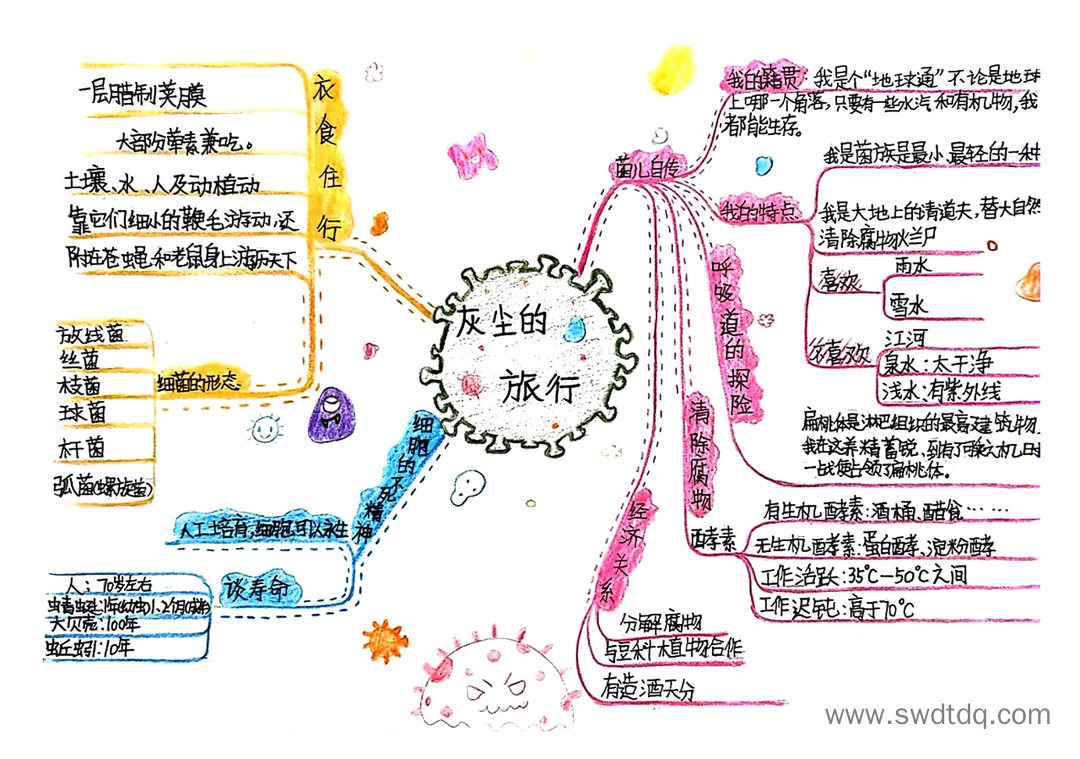 灰尘的
旅行
衣食住行
一层腊制荚膜
大部分荤素兼吃。
土壤、水、人及动植动
靠它们细小的鞭毛游动,还
附在苍蝇和老鼠身上游历天下
细菌的形态:
放线菌
丝菌
枝菌
球菌
杆菌
弧菌(螺旋菌)
细胞的不死精神
人工培育,细胞可以永生
谈寿命
人:70岁左右
大贝壳:100年
蚯蚓:10年
菌儿自传
我的籍贯:我是个“地球通”不论是地球
上哪一个角落,只要有一些水汽和有机物,我
都能生存。
我的特点
我是菌族是最小、最轻的一种
我是大地上的清道夫,替大自然
清除腐物
喜欢
雨水
雪水
不喜欢
江河
泉水:太干净
浅水:有紫外线
呼吸道的探险
扁桃体是淋巴组织的最高建筑物.
我在这养精蓄锐、到有可乘之机时
一战便占领了扁桃体。
清除腐物
酵素
有生机酵素:酒桶、醋食……
无生机酵素:蛋白酵、淀粉酵
工作活跃:35℃—50℃之间
工作迟钝:高于70℃
经济关系
分解腐物
与豆科植物合作
有造酒天分
www.swdtdq.com